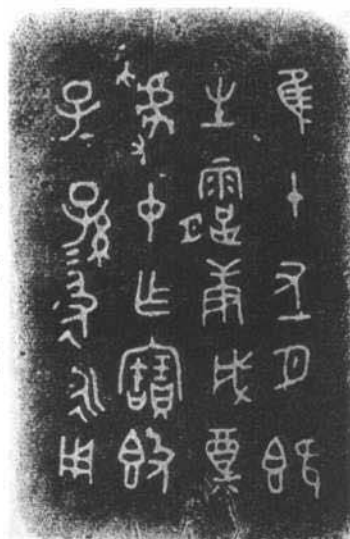 隹十又一月既
生霸庚戌奠
虢仲乍寶𣪘
子子孫孫彶永用